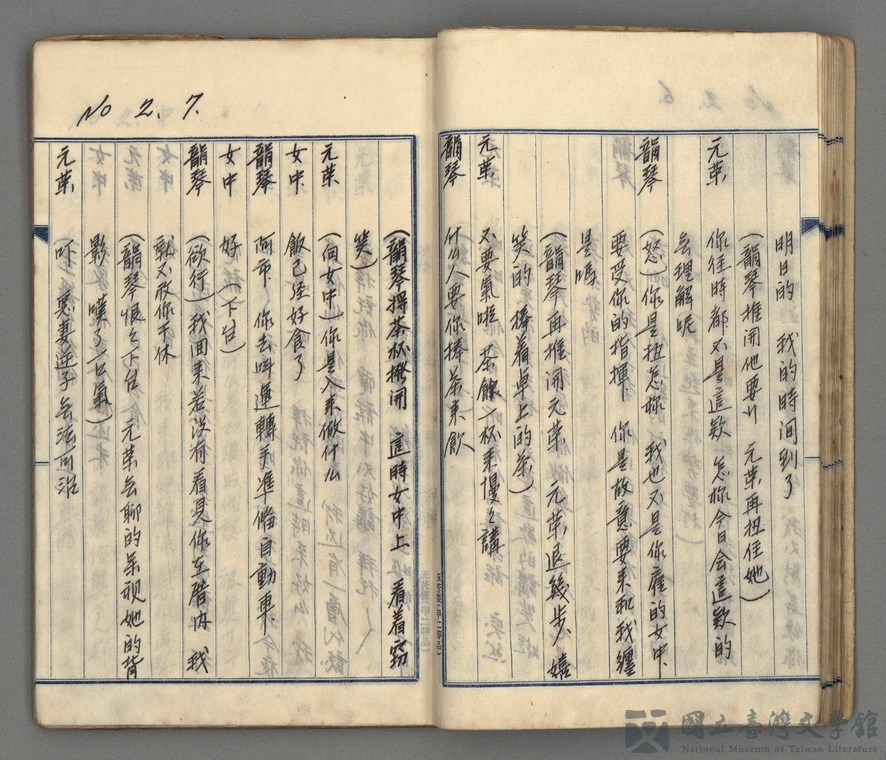 明日的 我的時間到了
(韻琴推開他要 元葉再扭住她)
元葉 你往時都不是這欵 怎樣今日会這欵的
去理解呢
韻琴 (怒)你是扭怎樣 我也不是你雇的女中
要受你的指揮 你是故意要来和我纏
是嗎
(韻琴再推開元葉 元葉退幾步 嬉
笑的 捧着卓上的茶)
元葉 不要氣啦 茶飲一杯来慢々講
韻琴 什么人要你捧茶来飲
No 2. 7.
(韻琴将茶杯撥開 這時女中上 看着窃
笑)
元葉 (向女中)你是入来做什么
女中 飯已経好食了
韻琴 阿币 你去叫運轉手准俻自動車
女中 好(下台)
韻琴 (欲行)我回来若没有看見你在厝内 我
就不放你干休
(韻琴恨々下台 元葉無聊的呆視她的背
影 嘆了一口氣)
元葉 吓 惡妻逆子 無法可治
國立臺灣文學館
National Museum of Taiwan Literature